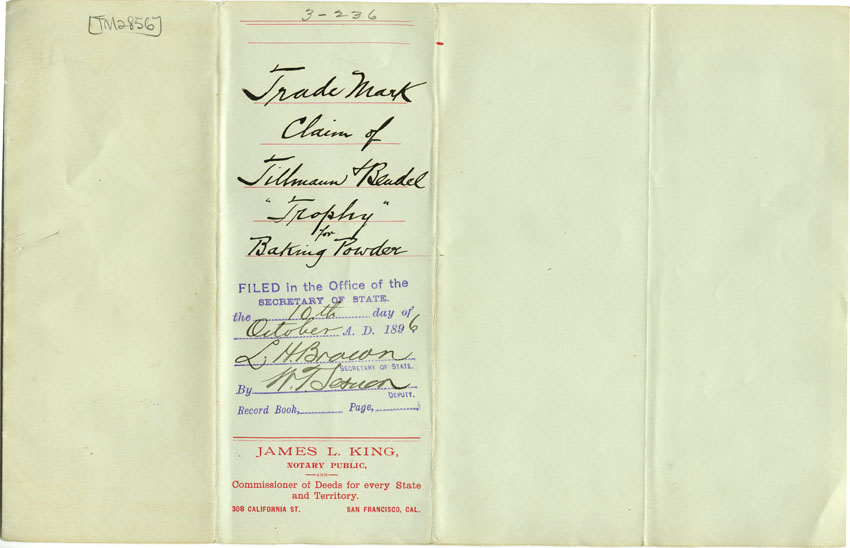 [TM2856]
3-236
Trade Mark
Claim of
Tillmann & Bendel
"Trophy"
for
Baking Powder
FILED in the Office of the
SECRETARY OF STATE.
the 10th day of
October A. D. 1896
L. H. Brown
SECRETARY OF STATE.
By W. T.
DEPUTY.
Record Book, Page,
JAMES L. KING,
NOTARY PUBLIC,
—AND—
Commissioner of Deeds for every State
and Territory.
308 CALIFORNIA ST. SAN FRANCISCO, CAL.